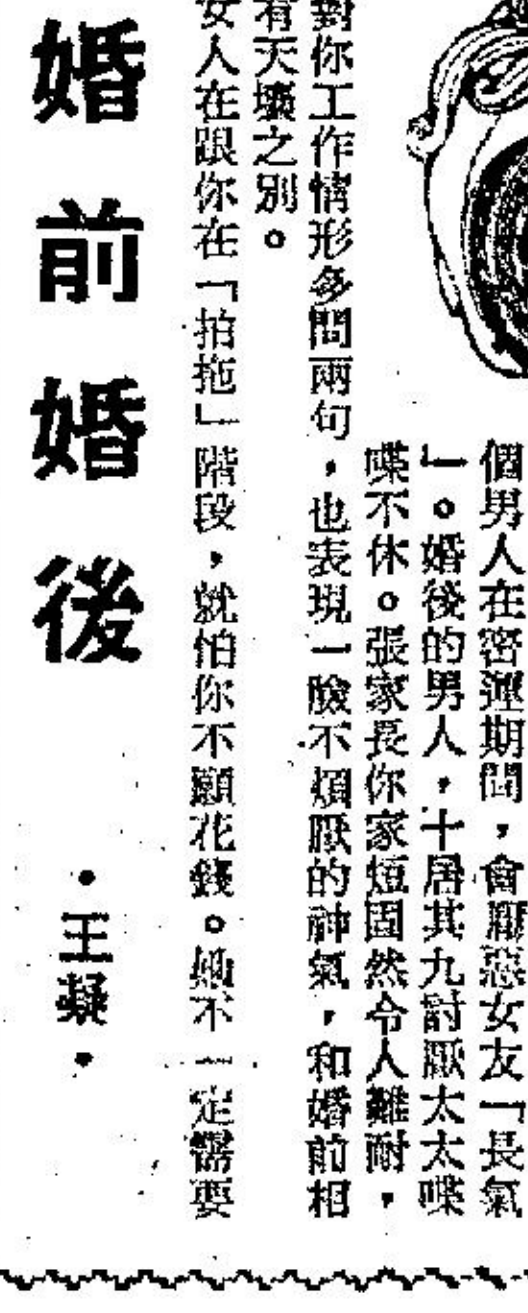 個男人在密運期間，會厭惡女友「長氣
」。婚後的男人，十居其九討厭太太喋
喋不休。張家長你家短固然令人難耐，
對你工作情形多問兩句，也表現一臉不煩厭的神氣，和婚前相
有天壤之別。
女人在跟你在「拍拖」階段，就怕你不願花錢。她不一定需要
婚前婚後
·王凝·